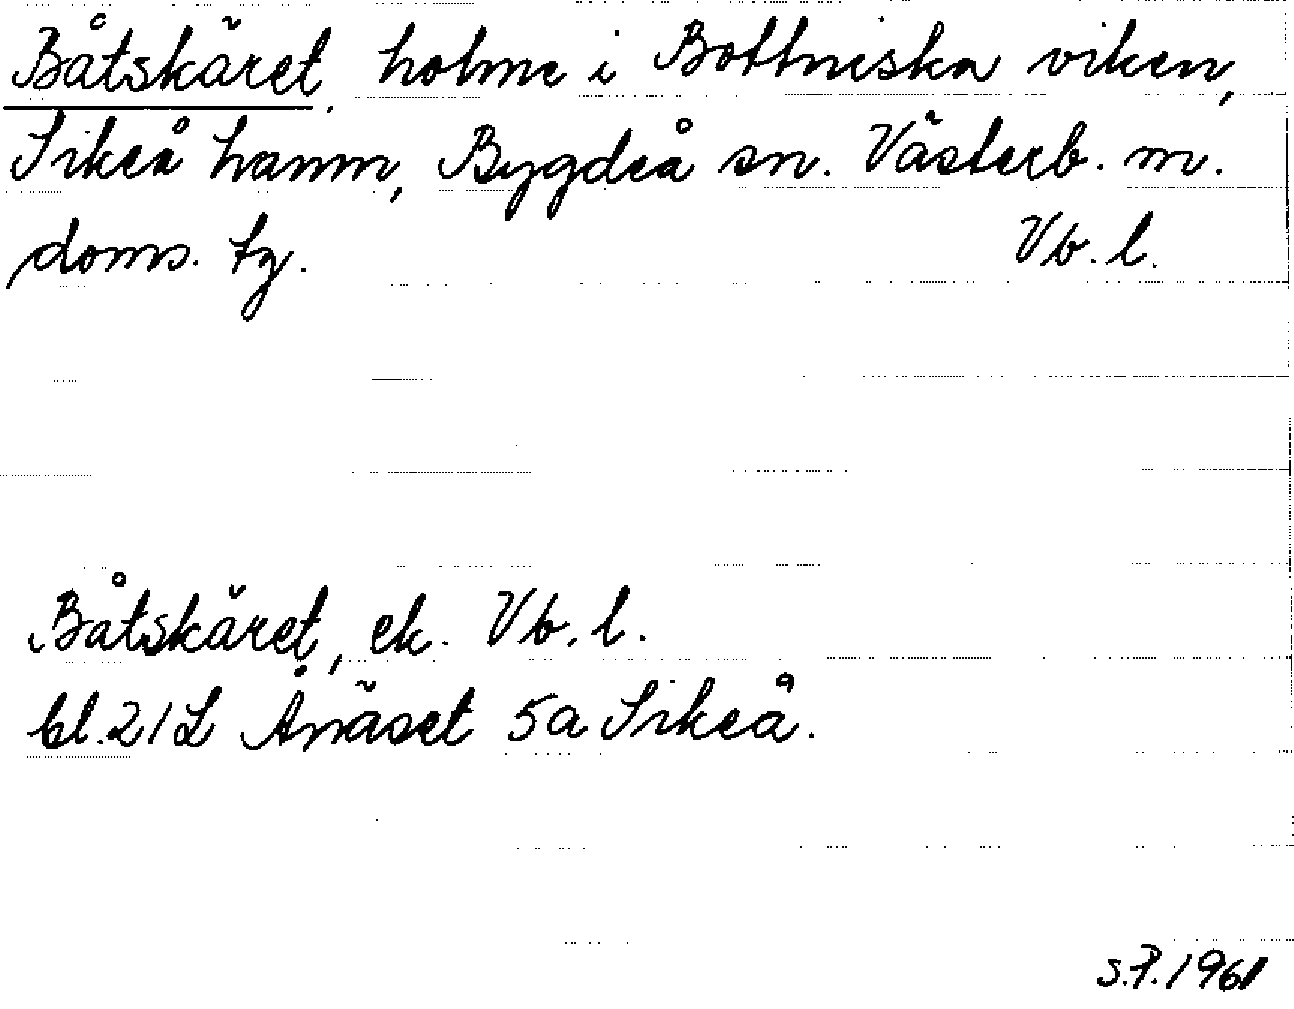 Båtskäret, holme i Bottniska viken,
Sikeå hamn, Bygdeå sn. Västerb. m.
doms. tg. Vb. l.
Båtskäret, ek. Vb. l.
bl. 21L Ånäset 5a Sikeå.
S.P. 1961